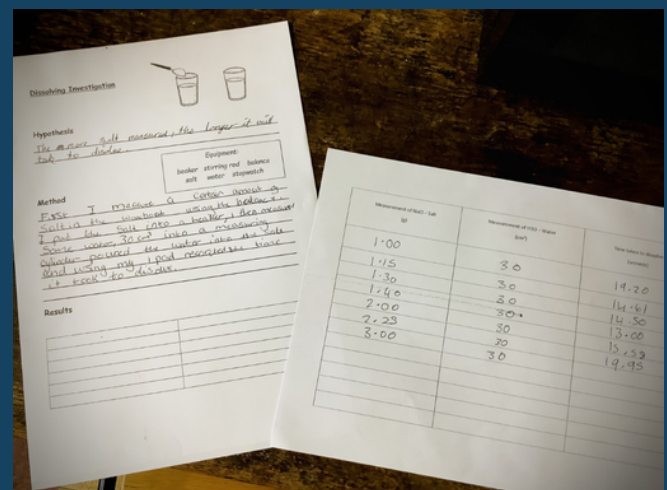 Dissolving Investigation
Hypothesis
The more salt measured, the longer it will
to
Equipment:
beaker stirring rod balance
salt water stopwatch
Method
First I measure a certain amount of
Salt in the using the balance.
I put the Salt into a beaker, then measured
Some water, 30 cm³ into a measuring
cylinder poured the water into the
and using my ipad recorded the time
it took to disolve.
Results
Measurement of NaCl - Salt
(g)
Measurement of H2O - Water
(cm³)
Time taken to
(seconds)
1.00
1.15 30 19.20
1.30 30 14.61
1.40 30 14.50
2.00 30 13.00
2.23 30
3.00 30 19.95
30